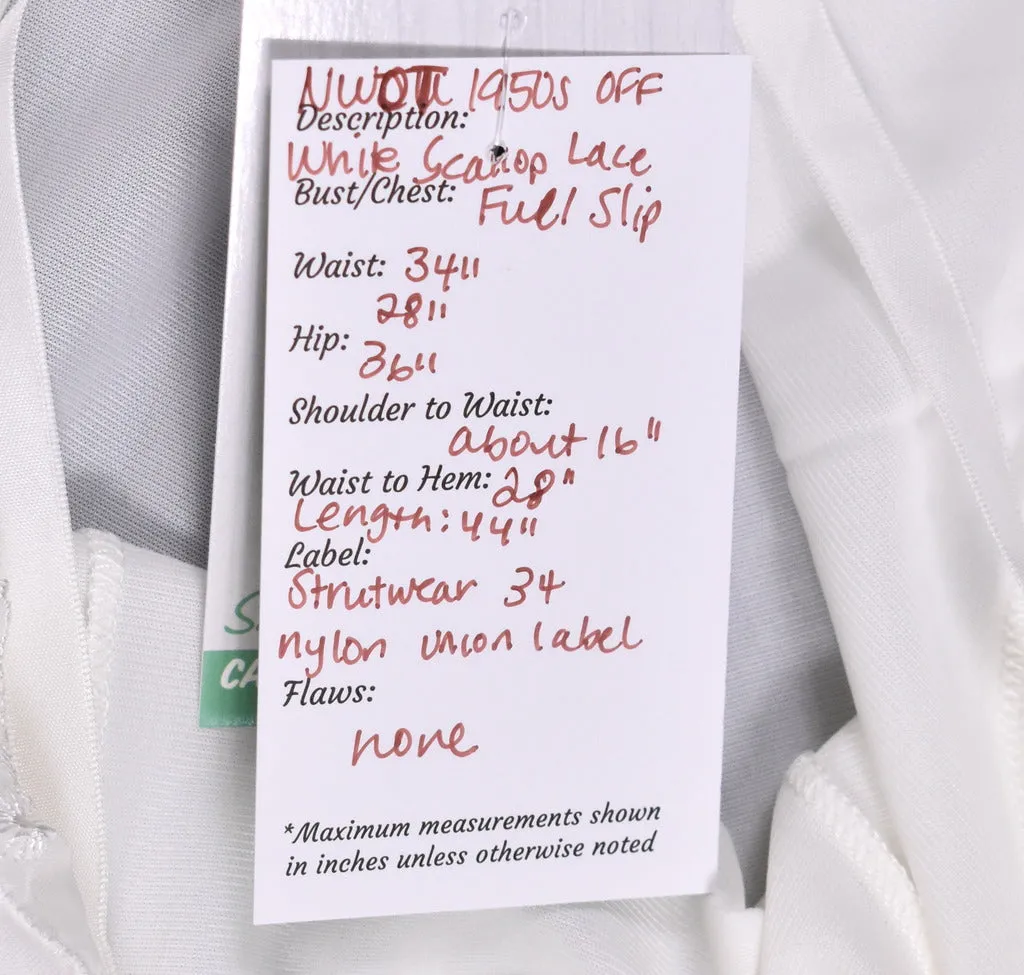 NWOT 1950s OFF
Description:
White Scallop Lace
Bust/Chest: Full Slip
Waist: 34"
28"
Hip:
36"
Shoulder to Waist:
about 16"
Waist to Hem: 28"
Length: 44"
Label:
Strutwear 34
nylon union label
Flaws:
none
*Maximum measurements shown
in inches unless otherwise noted